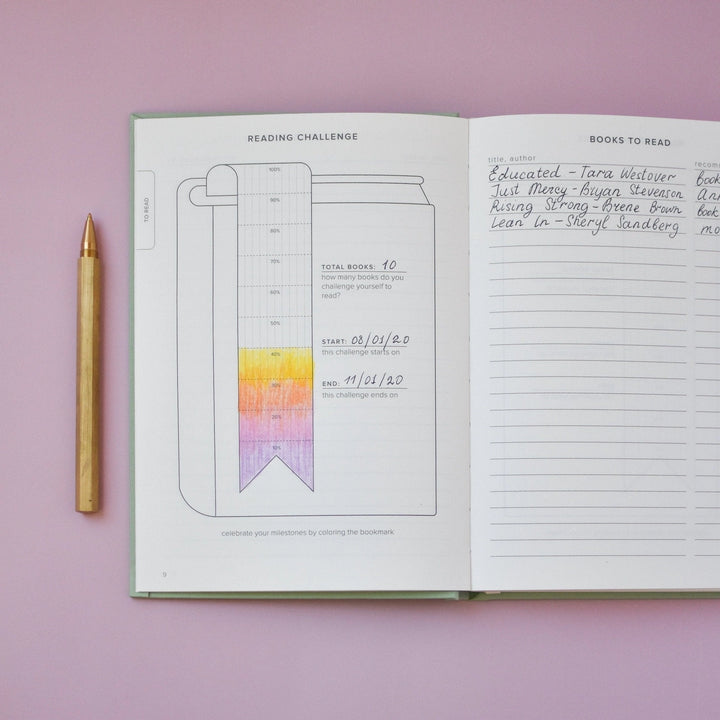 READING CHALLENGE
TO READ
100%
90%
80%
70%
60%
50%
40%
30%
20%
10%
TOTAL BOOKS: 10
how many books do you
challenge yourself to
read?
START: 08/01/20
this challenge starts on
END: 11/01/20
this challenge ends on
celebrate your milestones by coloring the bookmark
9
BOOKS TO READ
title, author
Educated - Tara Westover
Just Mercy - Bryan Stevenson
Rising Strong - Brene Brown
Lean In - Sheryl Sandberg
recom
Book
Ann
book
mo